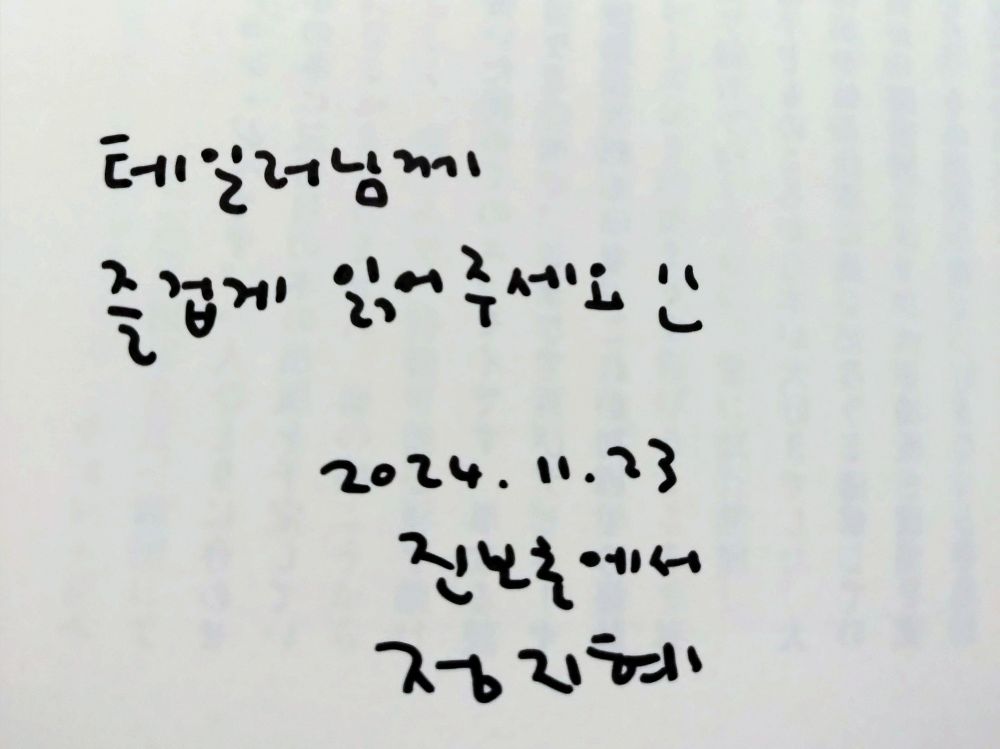 테일러님께
즐겁게 읽어주세요 :)
2024. 11. 23
진보초에서
정지혜